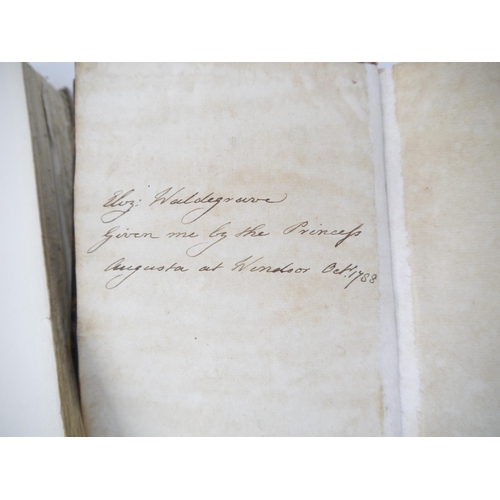 Eliz: Waldegrave
Given me by the Princess
Augusta at Windsor Oct. 1788